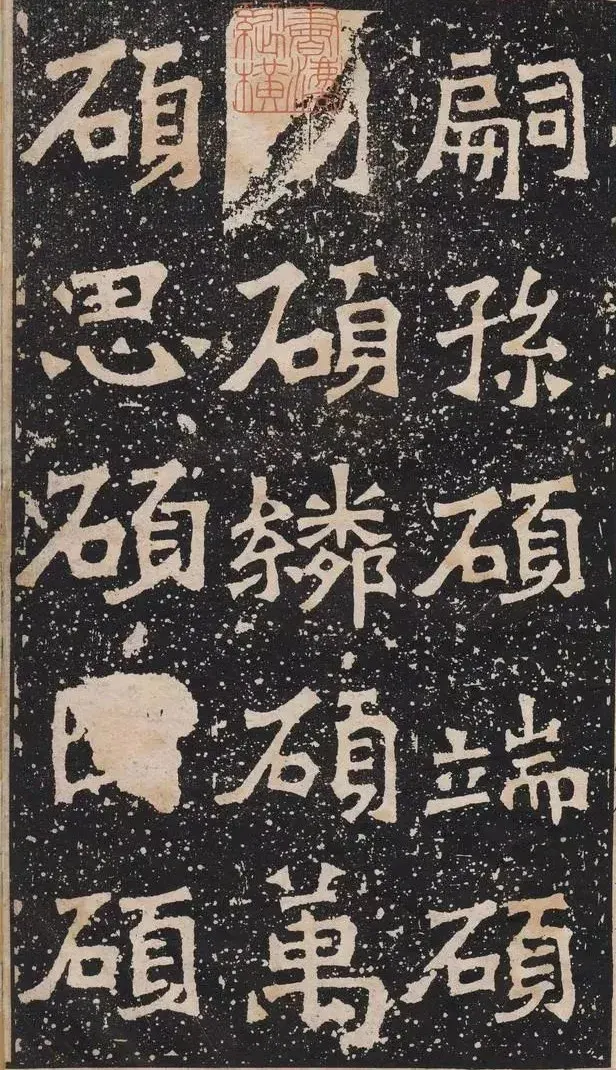 嗣孫碩端碩
碩碩萬
碩思碩碩